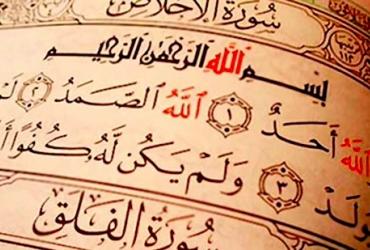 سُورَةُ الْإِخْلَاصِ
بِسْمِ اللَّهِ الرَّحْمَٰنِ الرَّحِيمِ
اللَّهُ أَحَدٌ ١ اللَّهُ الصَّمَدُ ٢ لَمْ
وَلَدْ ٣ وَلَمْ يَكُن لَّهُ كُفُوًا أَ
سُورَةُ الْفَلَقِ